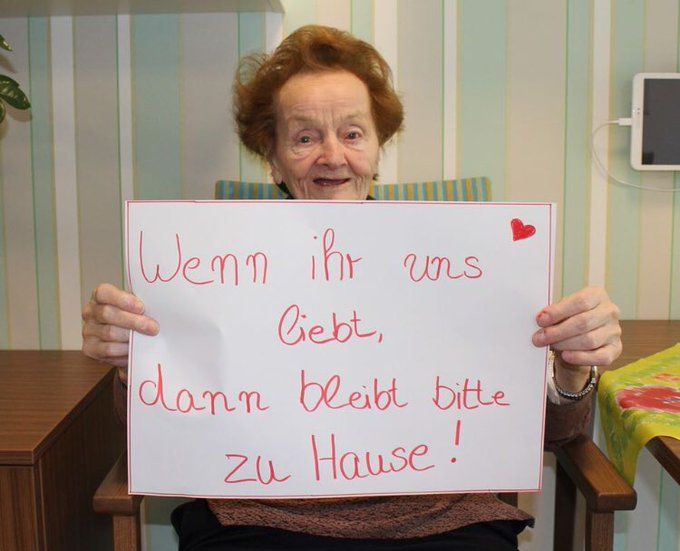 Wenn ihr uns
liebt,
dann bleibt bitte
zu Hause!